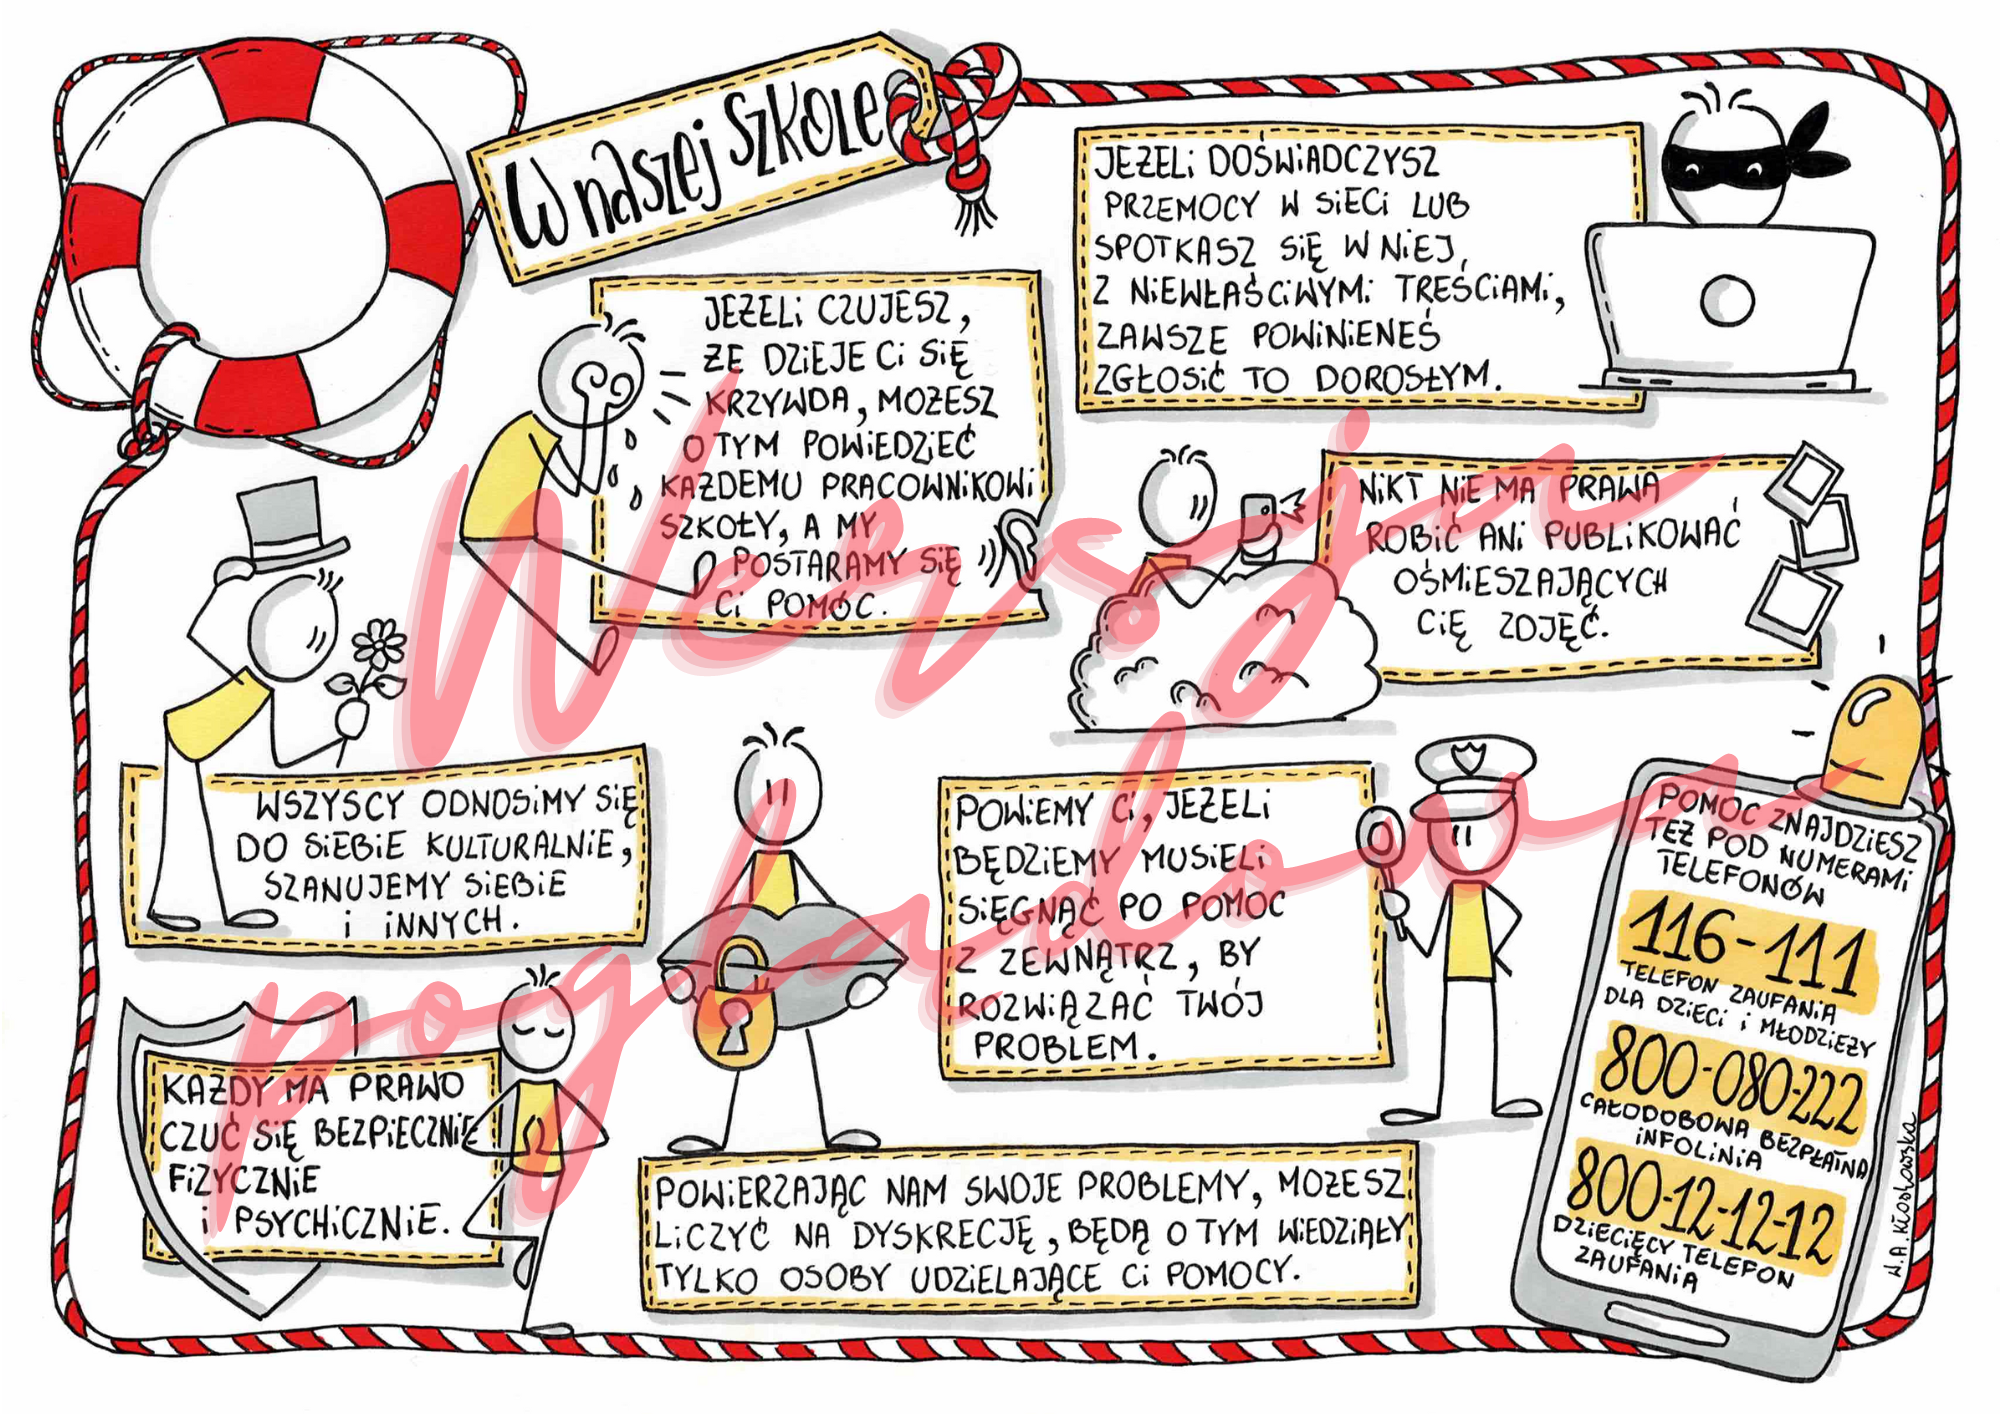 W naszej szkole
JEŻELI CZUJESZ,
ŻE DZIEJE CI SIĘ
KRZYWDA, MOŻESZ
O TYM POWIEDZIEĆ
KAŻDEMU PRACOWNIKOWI
SZKOŁY, A MY
POSTARAMY SIĘ
CI POMÓC.
JEŻELI DOŚWIADCZYSZ
PRZEMOCY W SIECI LUB
SPOTKASZ SIĘ W NIEJ,
Z NIEWŁAŚCIWYMI TREŚCIAMI,
ZAWSZE POWINIENEŚ
ZGŁOSIĆ TO DOROSŁYM.
NIKT NIE MA PRAWA
ROBIĆ ANI PUBLIKOWAĆ
OŚMIESZAJĄCYCH
CIĘ ZDJĘĆ.
WSZYSCY ODNOSIMY SIĘ
DO SIEBIE KULTURALNIE,
SZANUJEMY SIEBIE
I INNYCH.
POWIEMY CI, JEŻELI
BĘDZIEMY MUSIELI
SIĘGNĄĆ PO POMOC
Z ZEWNĄTRZ, BY
ROZWIĄZAĆ TWÓJ
PROBLEM.
KAŻDY MA PRAWO
CZUĆ SIĘ BEZPIECZNIE
FIZYCZNIE
I PSYCHICZNIE.
POWIERZAJĄC NAM SWOJE PROBLEMY, MOŻESZ
LICZYĆ NA DYSKRECJĘ, BĘDĄ O TYM WIEDZIAŁY
TYLKO OSOBY UDZIELAJĄCE CI POMOCY.
POMOC ZNAJDZIESZ
TEŻ POD NUMERAMI
TELEFONÓW
116-111
TELEFON ZAUFANIA
DLA DZIECI I MŁODZIEŻY
800-080-222
CAŁODOBOWA BEZPŁATNA
INFOLINIA
800-12-12-12
DZIECIĘCY TELEFON
ZAUFANIA
W.A. Kłosowska
Wersja
poglądowa